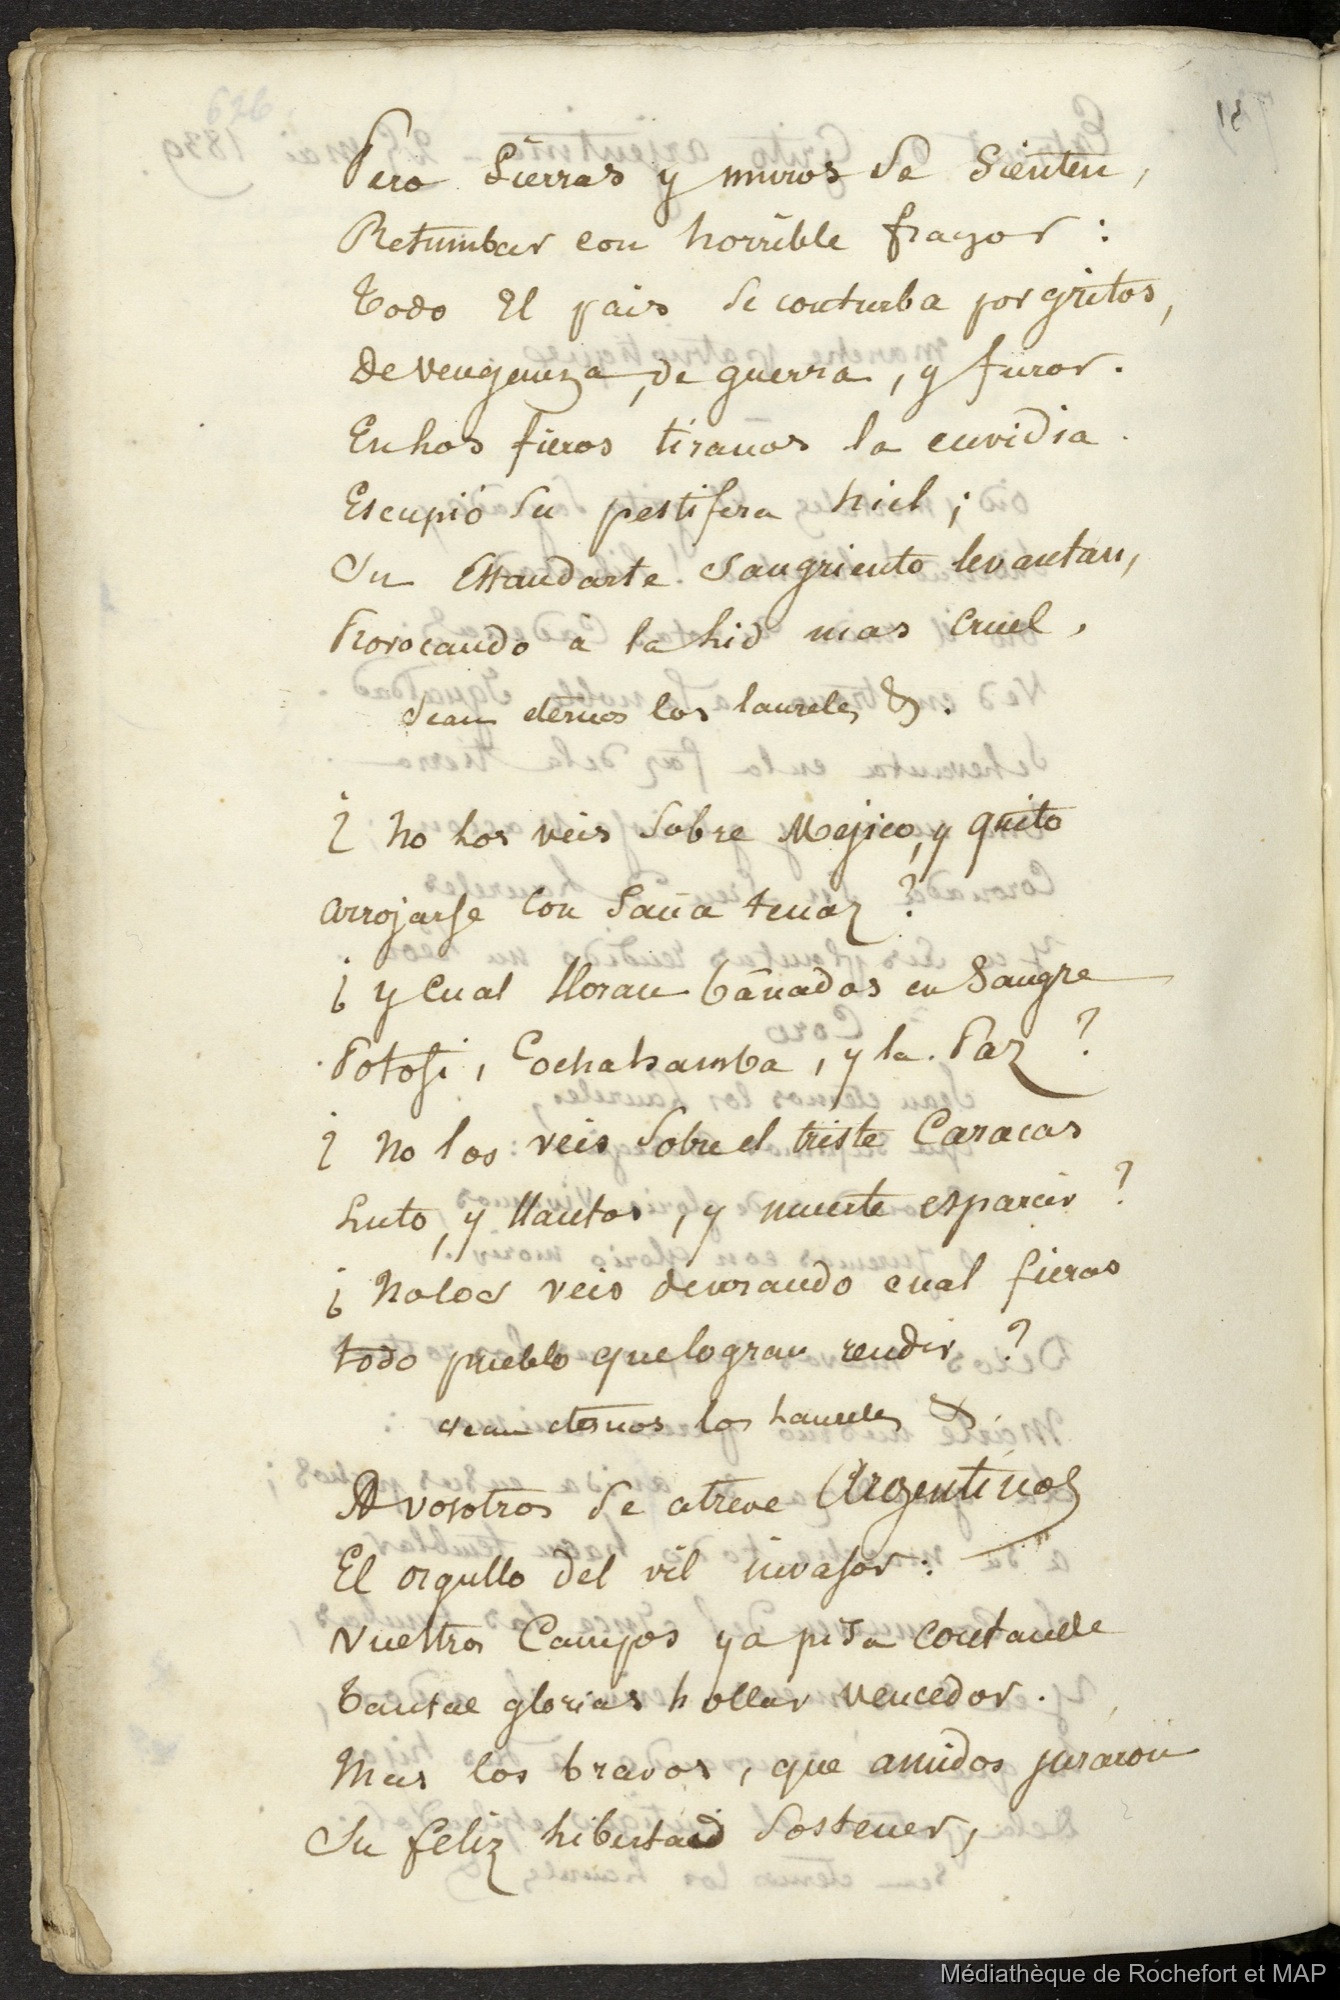 626
Pero Sierras y muros se sienten,
Retumbar con horrible fragor:
todo El pais se conturba por gritos,
de venganza, de guerra, y furor.
En hos fieros tiranos la envidia
Escupió su pestifera hiel;
Su Estandarte sangriento levantan,
Provocando à la hid mas Cruel,
Sean eternos los laureles &.
¿ No hos veis sobre Mejico, y quito
arrojarse con Saña tenaz?
¿ y cual lloran bañadas en Sangre
Potosi, Cochabamba, y la Paz?
¿ No los veis sobre el triste Caracas
Luto, y llantos, y muerte esparcir?
¿ No los veis devorando cual fieras
todo pueblo que logran rendir?
Sean eternos los haureles &
A vosotros se atreve Argentinos
El orgullo del vil invasor:
Vuestros Campos ya pisa contando
tantas glorias hollar vencedor.
Mas los bravos, que anidos juraron
Su feliz hibertad Sostener,
Médiathèque de Rochefort et MAP